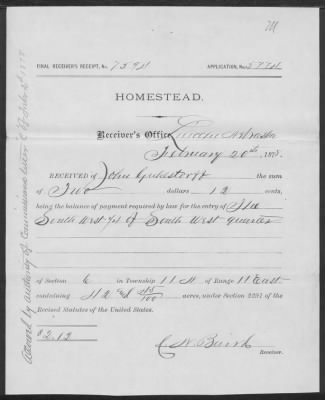 FINAL RECEIVER'S RECEIPT, No. 7594
APPLICATION, No.
HOMESTEAD.
Receiver's Office, Lincoln Nebraska
February 20th, 1878.
RECEIVED of John the sum
of Two dollars 12 cents,
being the balance of payment required by law for the entry of The
South West 1/4 of South West quarter
of Section 6 in Township 11 N of Range 11 East
containing 42 and 45/100 acres, under Section 2291 of the
Revised Statutes of the United States.
$2.12
Receiver.
by authority of Commissioners letter